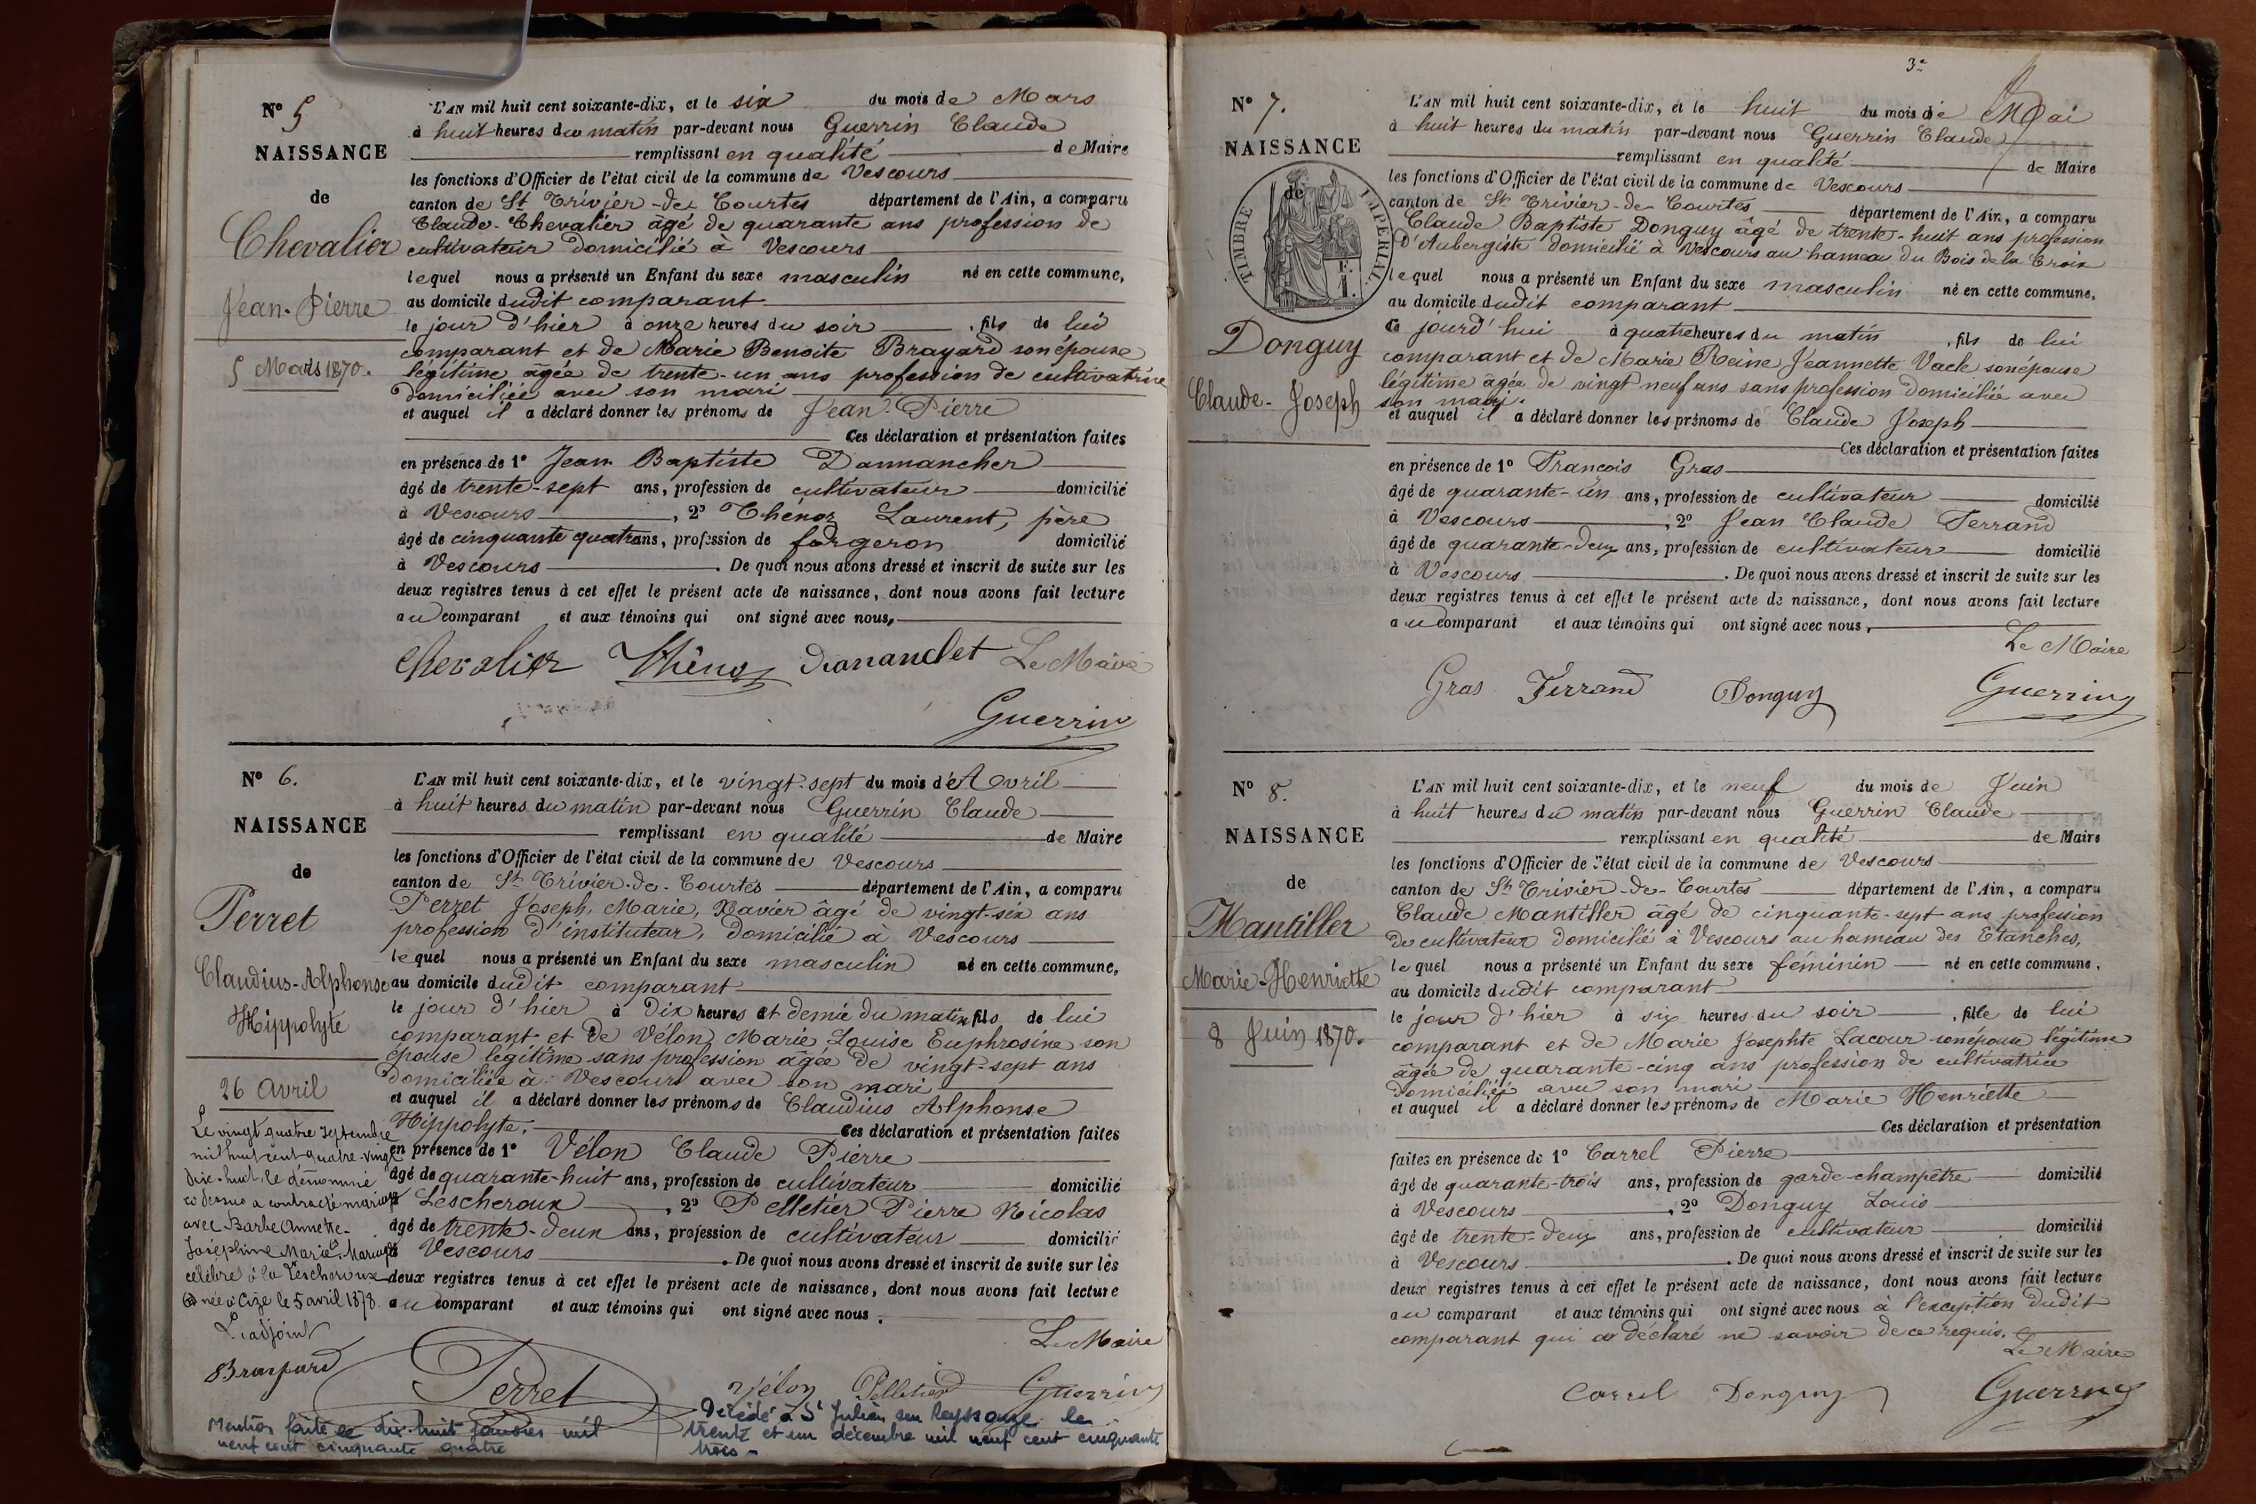 N° 5
NAISSANCE
de
Chevalier
Jean-Pierre
5 Mars 1870.
L'AN mil huit cent soixante-dix, et le six du mois de Mars
à huit heures du matin par-devant nous Guerrin Claude
remplissant en qualité de Maire
les fonctions d'Officier de l'état civil de la commune de Vescours
canton de St Trivier-de-Courtes département de l'Ain, a comparu
Claude Chevalier âgé de quarante ans profession de
cultivateur domicilié à Vescours
lequel nous a présenté un Enfant du sexe masculin né en cette commune,
au domicile dudit comparant
le jour d'hier à onze heures du soir, fils de lui
comparant et de Marie Benoite Brayard son épouse
légitime âgée de trente-un ans profession de cultivatrice
domiciliée avec son mari
et auquel il a déclaré donner les prénoms de Jean-Pierre
Ces déclaration et présentation faites
en présence de 1° Jean Baptiste Dannancher
âgé de trente-sept ans, profession de cultivateur domicilié
à Vescours, 2° Thénoz Laurent, père
âgé de cinquante quatre ans, profession de forgeron domicilié
à Vescours. De quoi nous avons dressé et inscrit de suite sur les
deux registres tenus à cet effet le présent acte de naissance, dont nous avons fait lecture
au comparant et aux témoins qui ont signé avec nous,
Chevalier Thénoz Le Maire
Guerrin
N° 6.
NAISSANCE
de
Perret
Claudius-Alphonse
Hippolyte
26 Avril
Le vingt quatre septembre
mil huit cent quatre-vingt
dix-huit, le dénommé
ci dessus a contracté mariage
avec Barbe Annette-
Joséphine Marie. Mariage
célébré à la Lescheroux
née à Cize le 5 avril 1878.
L'adjoint
L'AN mil huit cent soixante-dix, et le vingt-sept du mois d'Avril
à huit heures du matin par-devant nous Guerrin Claude
remplissant en qualité de Maire
les fonctions d'Officier de l'état civil de la commune de Vescours
canton de St Trivier-de-Courtes département de l'Ain, a comparu
Perret Joseph, Marie, Xavier âgé de vingt-six ans
profession d'instituteur, domicilié à Vescours
lequel nous a présenté un Enfant du sexe masculin né en cette commune,
au domicile dudit comparant
le jour d'hier à dix heures et demie du matin, fils de lui
comparant et de Vélon Marie Louise Euphrosine son
épouse légitime sans profession âgée de vingt-sept ans
domiciliée à Vescours avec son mari
et auquel il a déclaré donner les prénoms de Claudius Alphonse
Hippolyte. Ces déclaration et présentation faites
en présence de 1° Vélon Claude Pierre
âgé de quarante-huit ans, profession de cultivateur domicilié
à Lescheroux, 2° Pelletier Pierre Nicolas
âgé de trente-deux ans, profession de cultivateur domicilié
à Vescours. De quoi nous avons dressé et inscrit de suite sur les
deux registres tenus à cet effet le présent acte de naissance, dont nous avons fait lecture
au comparant et aux témoins qui ont signé avec nous.
Le Maire
Perret Vélon Pelletier Guerrin
Décédé à St Julien sur Reyssouze le
trente et un décembre mil neuf cent cinquante
trois-
Mention faite le dix-huit janvier mil
neuf cent cinquante quatre
3e
N° 7.
NAISSANCE
de
TIMBRE IMPERIAL
Donguy
Claude-Joseph
L'AN mil huit cent soixante-dix, et le huit du mois de Mai
à huit heures du matin par-devant nous Guerrin Claude
remplissant en qualité de Maire
les fonctions d'Officier de l'état civil de la commune de Vescours
canton de St Trivier-de-Courtes département de l'Ain, a comparu
Claude Baptiste Donguy âgé de trente-huit ans profession
d'Aubergiste domicilié à Vescours au hameau du Bois de la Croix
lequel nous a présenté un Enfant du sexe masculin né en cette commune,
au domicile dudit comparant
ce jourd'hui à quatre heures du matin, fils de lui
comparant et de Marie Reine Jeannette Vack son épouse
légitime âgée de vingt neuf ans sans profession domiciliée avec
son mari.
et auquel il a déclaré donner les prénoms de Claude Joseph
Ces déclaration et présentation faites
en présence de 1° François Gras
âgé de quarante-un ans, profession de cultivateur domicilié
à Vescours, 2° Jean Claude Ferrand
âgé de quarante-deux ans, profession de cultivateur domicilié
à Vescours. De quoi nous avons dressé et inscrit de suite sur les
deux registres tenus à cet effet le présent acte de naissance, dont nous avons fait lecture
au comparant et aux témoins qui ont signé avec nous,
Le Maire
Gras Ferrand Donguy Guerrin
N° 8.
NAISSANCE
de
Mantiller
Marie-Henriette
8 Juin 1870.
L'AN mil huit cent soixante-dix, et le neuf du mois de Juin
à huit heures du matin par-devant nous Guerrin Claude
remplissant en qualité de Maire
les fonctions d'Officier de l'état civil de la commune de Vescours
canton de St Trivier-de-Courtes département de l'Ain, a comparu
Claude Mantiller âgé de cinquante-sept ans profession
de cultivateur domicilié à Vescours au hameau des Etanches,
lequel nous a présenté un Enfant du sexe féminin né en cette commune,
au domicile dudit comparant
le jour d'hier à six heures du soir, fille de lui
comparant et de Marie Josephte Lacour son épouse légitime
âgée de quarante-cinq ans profession de cultivatrice
domiciliée avec son mari
et auquel il a déclaré donner les prénoms de Marie Henriette
Ces déclaration et présentation
faites en présence de 1° Carrel Pierre
âgé de quarante-trois ans, profession de garde-champêtre domicilié
à Vescours, 2° Donguy Louis
âgé de trente-deux ans, profession de cultivateur domicilié
à Vescours. De quoi nous avons dressé et inscrit de suite sur les
deux registres tenus à cet effet le présent acte de naissance, dont nous avons fait lecture
au comparant et aux témoins qui ont signé avec nous à l'exception dudit
comparant qui a déclaré ne savoir de ce requis.
Le Maire
Carrel Donguy Guerrin